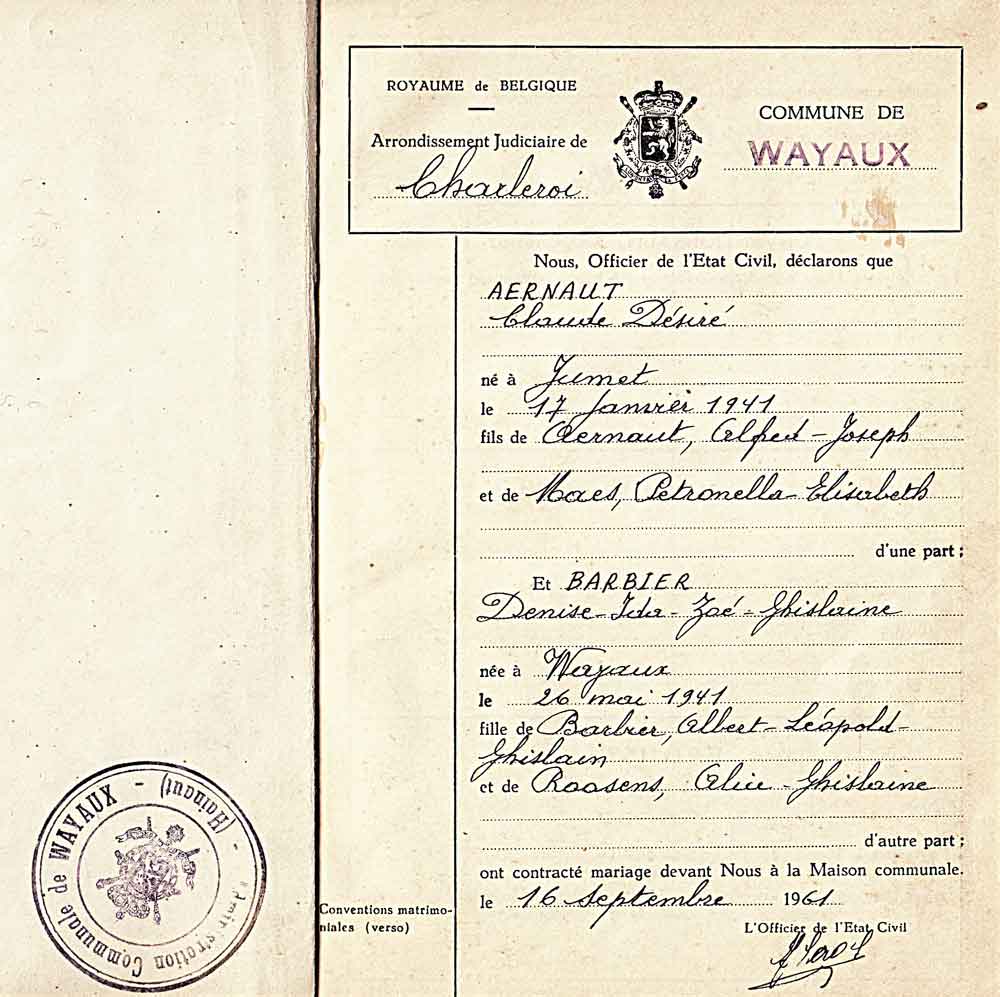 ROYAUME de BELGIQUE
Arrondissement Judiciaire de
Charleroi
COMMUNE DE
WAYAUX
Nous, Officier de l'Etat Civil, déclarons que
AERNAUT
Claude Désiré
né à Jumet
le 17 janvier 1941
fils de Aernaut, Alfred-Joseph
et de Maes, Petronella-Elisabeth
d'une part ;
Et BARBIER
Denise-Ida-Zoé-Ghislaine
née à Wayaux
le 26 mai 1941
fille de Barbier, Albert-Léopold-
Ghislain
et de Roosens, Alice-Ghislaine
d'autre part ;
ont contracté mariage devant Nous à la Maison communale.
le 16 septembre 1961
L'Officier de l'Etat Civil
Conventions matrimo-
niales (verso)
Communale de WAYAUX - (Hainaut) -